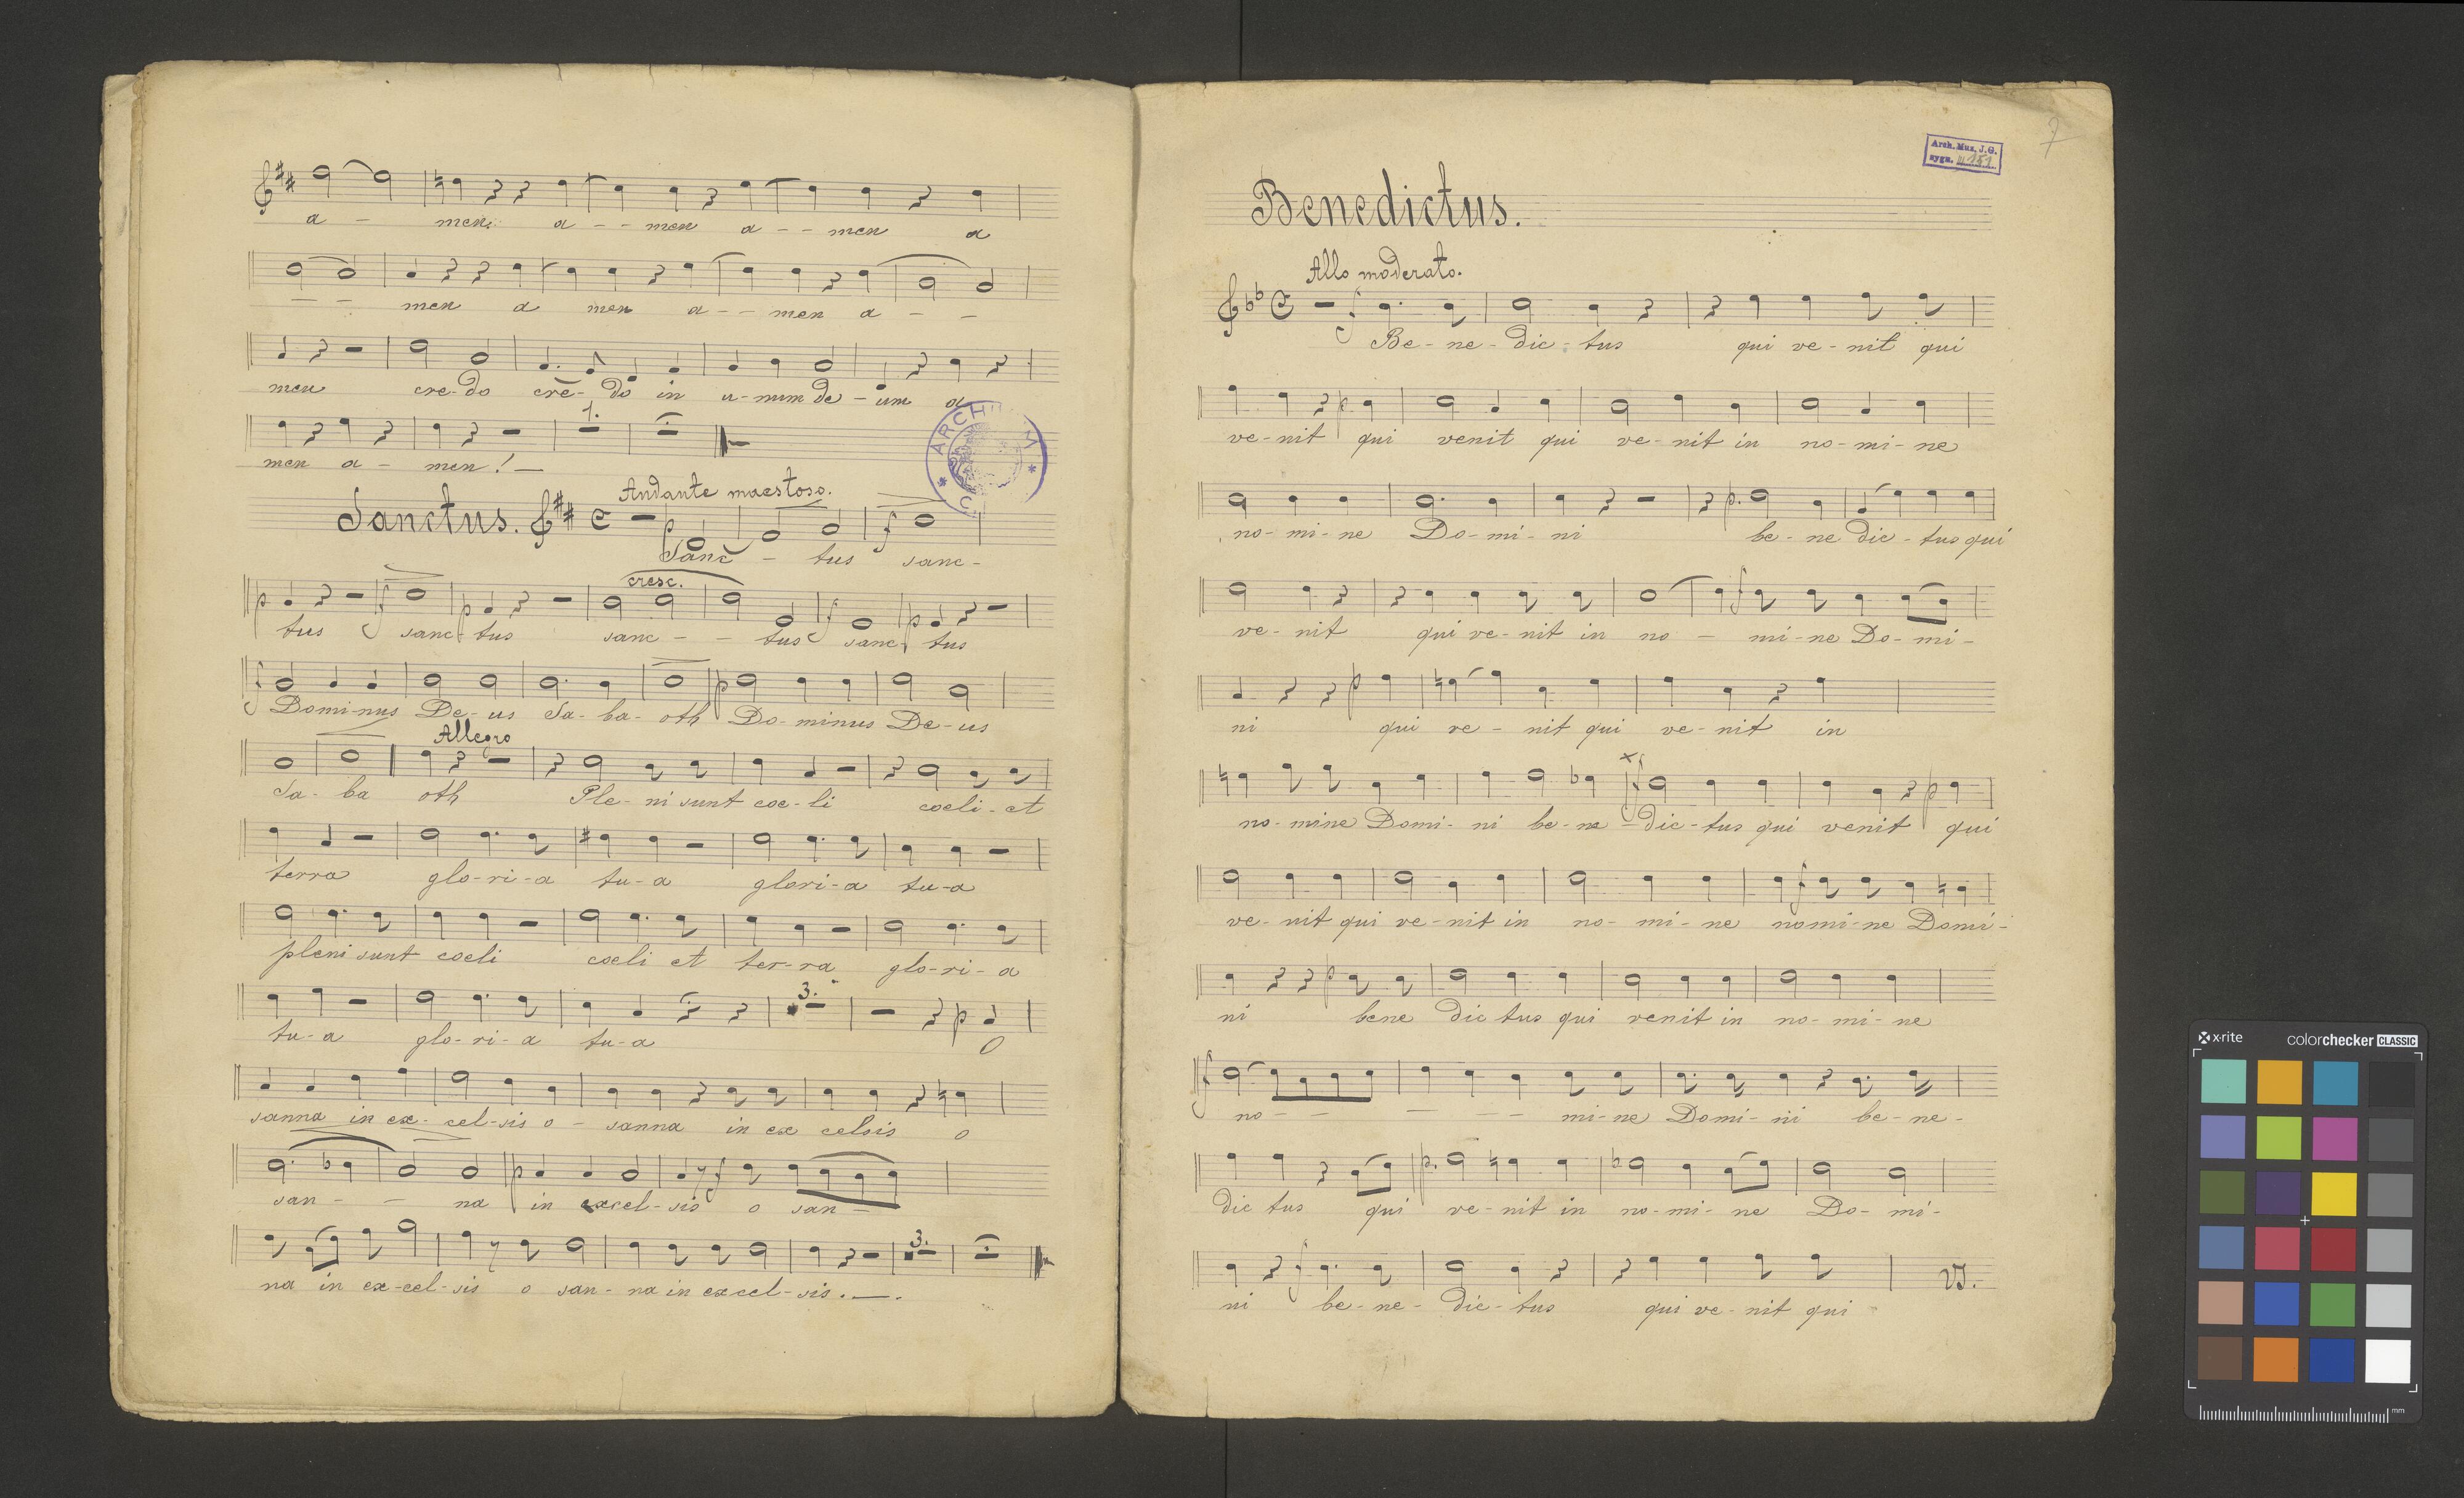 a - men a - - men a - - men a
- - men a men a - - men a - -
men cre-do cre-do in u-num de-um a
1.
men a - men! —
Andante maestoso.
Sanctus. Sanc - tus sanc-
cresc.
tus sanc tus sanc - - tus sanc tus
Dominus De-us Sa-ba-oth Do-minus De-us
Allegro
Sa-ba oth Ple-ni sunt coe-li coeli-et
terra glo-ri-a tu-a glori-a tu-a
pleni sunt coeli coeli et ter-ra glo-ri-a
3.
tu-a glo-ri-a tu-a O
sanna in ex-cel-sis o-sanna in ex celsis o
san - - na in excel-sis o san-
3.
na in ex-cel-sis o san-na in excel-sis. —.
ARCHI M
Arch. Muz. J.G.
sygn. 151
7
Benedictus.
Allo moderato.
Be-ne-dic-tus qui ve-nit qui
ve-nit qui venit qui ve-nit in no-mi-ne
no-mi-ne Do-mi-ni be-ne dic-tus qui
ve-nit qui ve-nit in no - mi-ne Do-mi-
ni qui ve-nit qui ve-nit in
no-mine Domi-ni be-ne-dic-tus qui venit qui
ve-nit qui ve-nit in no-mi-ne nomi-ne Domi-
ni bene dic tus qui venit in no-mi-ne
no - - - - - mi-ne Domi-ni be-ne-
dic tus qui ve-nit in no-mi-ne Do-mi-
ni be-ne-dic-tus qui ve-nit qui
VS.
x-rite
colorchecker CLASSIC
mm